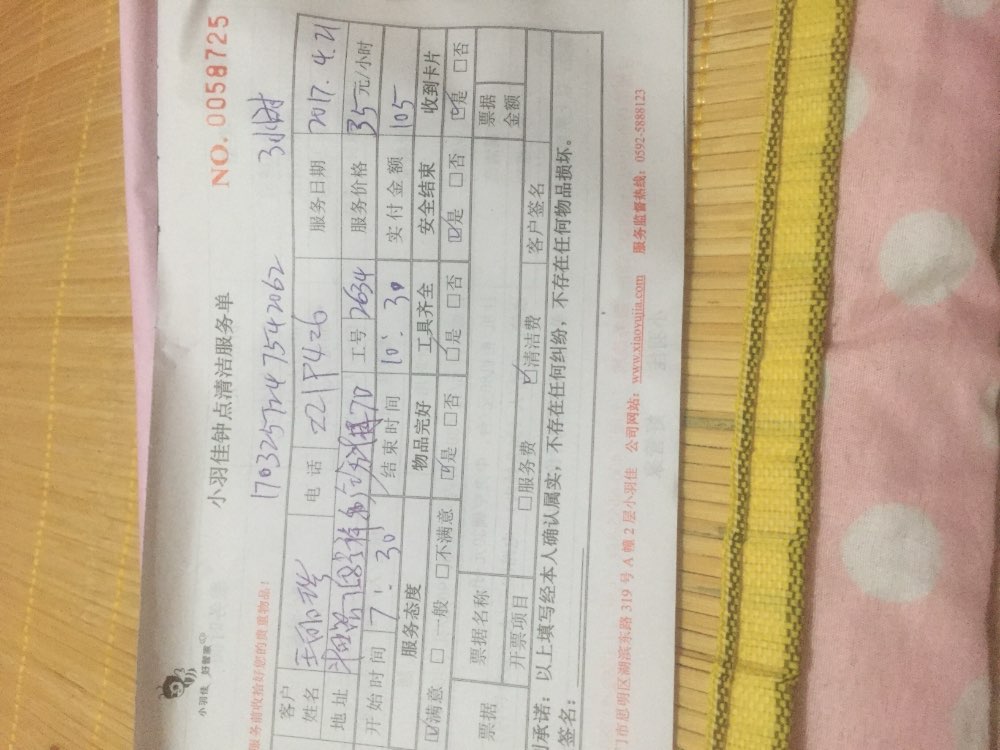 小羽佳 好管家
小羽佳钟点清洁服务单
NO. 0058725
服务前收拾好您的贵重物品!
17032572475542062 3小时
客户姓名 电话 221P426 服务日期 2017.4.21
地址 工号 2634 服务价格 35元/小时
开始时间 7:30 结束时间 10:30 实付金额 105
服务态度 物品完好 工具齐全 安全结束 收到卡片
☑满意 □一般 □不满意 ☑是 □否 ☑是 □否 ☑是 □否 ☑是 □否
票据 票据名称 票据金额
开票项目 □服务费 ☑清洁费 客户签名
承诺:以上填写经本人确认属实,不存在任何纠纷,不存在任何物品损坏。
签名:
门市思明区湖滨东路 319 号 A 幢 2 层小羽佳 公司网站:www.xiaoyujia.com 服务监督热线:0592-5888123